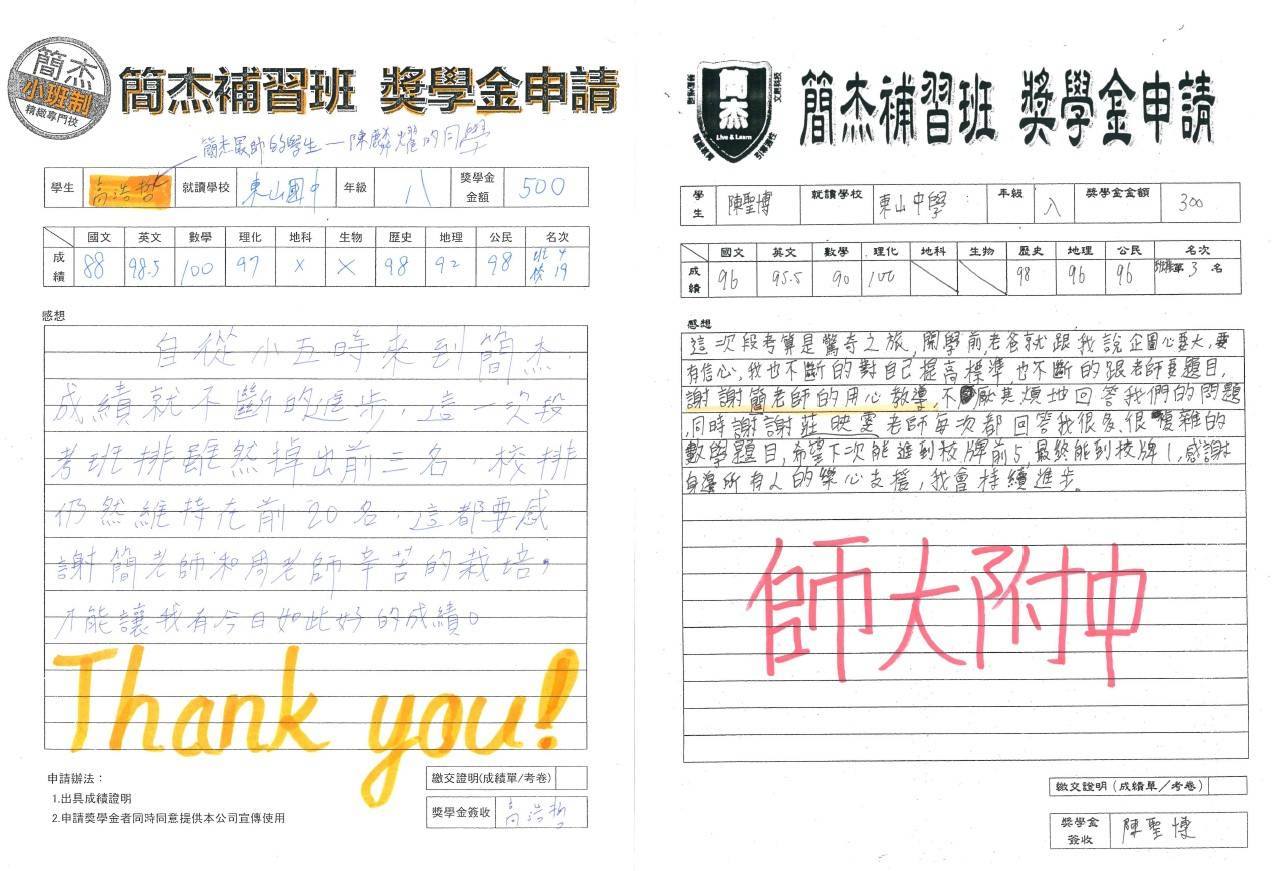 簡杰
小班制
精緻專門校
簡杰補習班 獎學金申請
簡杰最帥的學生—陳麟燿的同學
學生 高浩哲 就讀學校 東山國中 年級 八 獎學金金額 500
國文 英文 數學 理化 地科 生物 歷史 地理 公民 名次
成績 88 98.5 100 97 X X 98 92 98 班 4 校 19
感想
自從小五時來到簡杰,
成績就不斷的進步,這一次段
考班排雖然掉出前三名,校排
仍然維持在前20名,這都要感
謝簡老師和周老師辛苦的栽培,
才能讓我有今日如此好的成績。
Thank you!
申請辦法:
1.出具成績證明
2.申請獎學金者同時同意提供本公司宣傳使用
繳交證明(成績單/考卷)
獎學金簽收 高浩哲
簡杰
Live & Learn
簡杰補習班 獎學金申請
學生 陳聖博 就讀學校 東山中學 年級 八 獎學金金額 300
國文 英文 數學 理化 地科 生物 歷史 地理 公民 名次
成績 96 95.5 90 100 98 96 96 班排第 3 名
感想
這次段考算是驚奇之旅,開學前,老爸就跟我說企圖心要大,要
有信心,我也不斷的對自己提高標準也不斷的跟老師要題目,
謝謝簡老師的用心教導,不厭其煩地回答我們的問題
,同時謝謝莊映雯老師每次都回答我很多、很複雜的
數學題目,希望下次能進到校牌前5,最終能到校牌1,感謝
身邊所有人的樂心支援,我會持續進步。
師大附中
繳交證明(成績單/考卷)
獎學金簽收 陳聖博